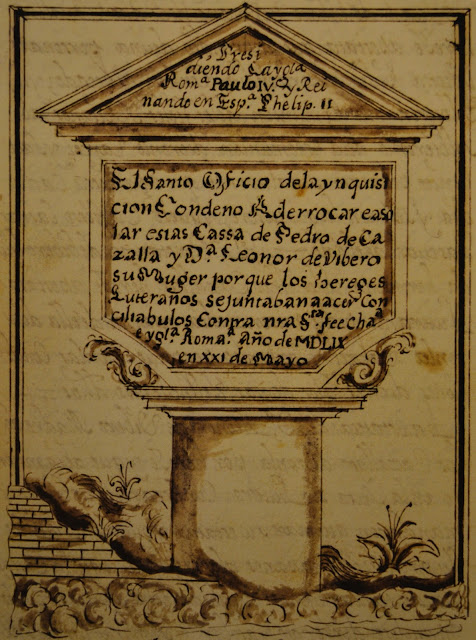 Presi
diendo La ygla.
Romª. Paulo IV. y Rei
nando en Esp.ª Phelip. II
El Santo Oficio de la ynquisi
cion Condeno A derrocar e aso
lar estas Cassa de Pedro de Ca
zalla y Dª. Leonor de Vibero
su Muger por que los hereges
Luteranos se juntaban a acer Con
ciliabulos Conpra nra Sta. fee Chaª
e yglª. Romaª. Año de MDLIX
en XXI de Mayo